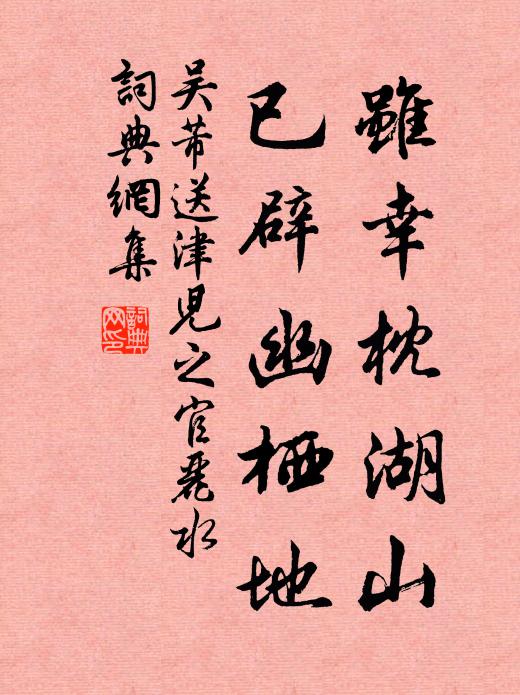 雖幸枕湖山
已辟幽栖地
吴芾送津兒之官麗水
詞典網集
詞典网印